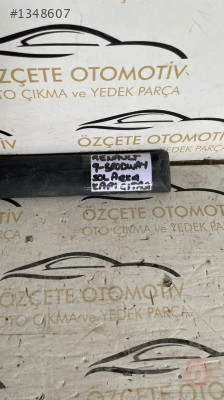 #1348607
ÖZÇETE OTOMOTİV
OTO ÇIKMA ve YEDEK PARÇA
RENAULT
9-BRODWAY
SOL ARKA
KAPI ÇITASI
ÖZÇETE OTOMOTİV
OTO ÇIKMA ve YEDEK PARÇA
ÖZÇETE OTOMOTİV
OTO ÇIKMA ve YEDEK PARÇA